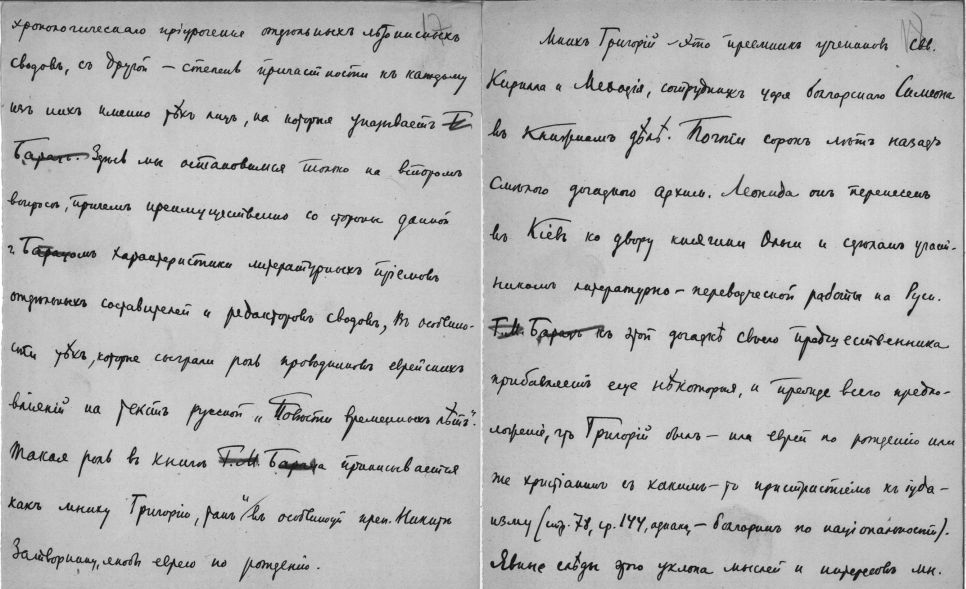 17
хронологическаго пріуроченія отдѣльныхъ лѣтописныхъ
сводовъ, съ другой – степень причастности къ каждому
изъ нихъ именно тѣхъ лицъ, на которыя указываетъ Г.
Барацъ. Здѣсь мы остановимся только на второмъ
вопросѣ, причемъ преимущественно со стороны данной
г. Барацомъ характеристики литературныхъ пріемовъ
отдѣльныхъ составителей и редакторовъ сводовъ, въ особенно-
сти тѣхъ, которые сыграли роль проводниковъ еврейскихъ
вліяній на текстъ русской „Повѣсти временныхъ лѣтъ".
Такая роль въ книгѣ Г.М. Бараца приписывается
какъ мниху Григорію, такъ и въ особенности преп. Никитѣ
Затворнику, якобы еврею по рожденію.
Мнихъ Григорій – это преемникъ учениковъ свв.
Кирилла и Меѳодія, сотрудникъ царя болгарскаго Симеона
въ книжномъ дѣлѣ. Почти сорокъ лѣтъ назадъ
смѣлою догадкою архим. Леонида онъ перенесенъ
въ Кіевъ ко двору княгини Ольги и сдѣланъ участ-
никомъ литературно – переводческой работы на Руси.
Г.М. Барацъ къ этой догадкѣ своего предшественника
прибавляетъ еще нѣкоторыя, и прежде всего предпо-
ложеніе, чтъ Григорій былъ – или еврей по рожденію или
же христіанинъ съ какимъ – то пристрастіемъ къ іуда-
изму (стр. 78, ср. 144, однако – болгаринъ по національности).
Явные слѣды этого уклона мыслей и интересовъ мн.